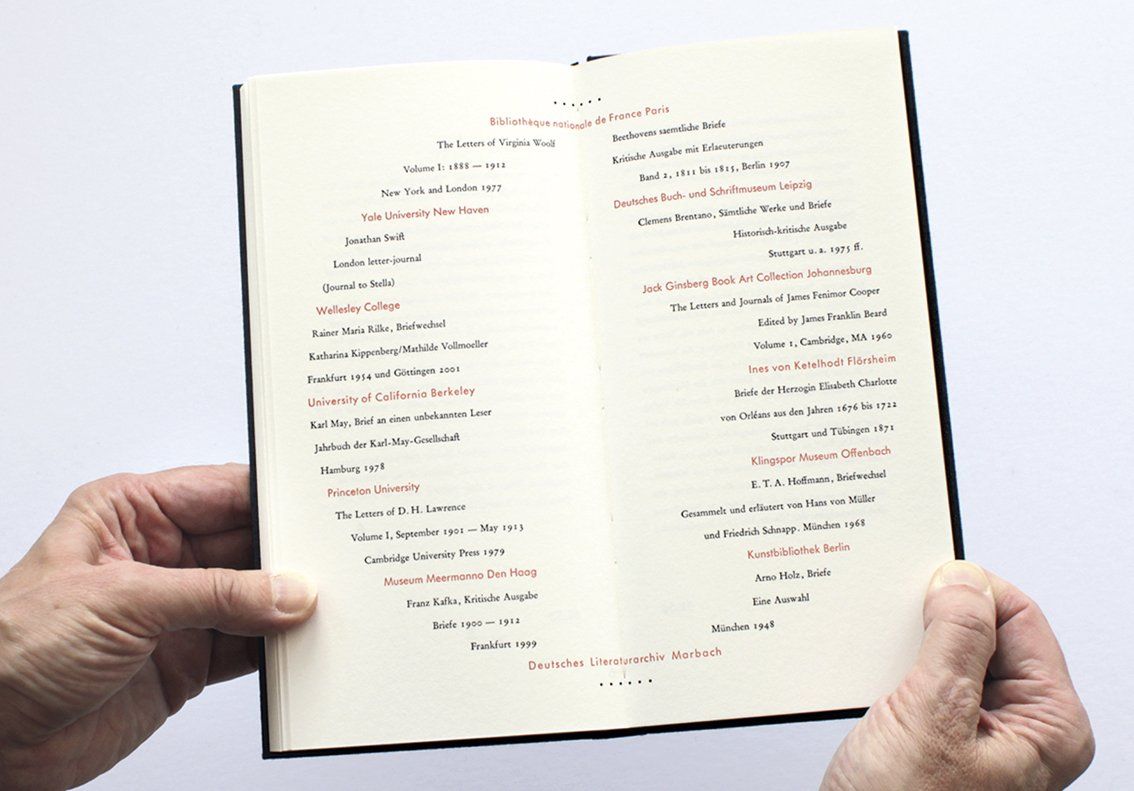 Bibliothèque nationale de France Paris
The Letters of Virginia Woolf
Volume I: 1888 — 1912
New York and London 1977
Yale University New Haven
Jonathan Swift
London letter-journal
(Journal to Stella)
Wellesley College
Rainer Maria Rilke, Briefwechsel
Katharina Kippenberg/Mathilde Vollmoeller
Frankfurt 1954 und Göttingen 2001
University of California Berkeley
Karl May, Brief an einen unbekannten Leser
Jahrbuch der Karl-May-Gesellschaft
Hamburg 1978
Princeton University
The Letters of D. H. Lawrence
Volume I, September 1901 — May 1913
Cambridge University Press 1979
Museum Meermanno Den Haag
Franz Kafka, Kritische Ausgabe
Briefe 1900 — 1912
Frankfurt 1999
Beethovens saemtliche Briefe
Kritische Ausgabe mit Erlaeuterungen
Band 2, 1811 bis 1815, Berlin 1907
Deutsches Buch- und Schriftmuseum Leipzig
Clemens Brentano, Sämtliche Werke und Briefe
Historisch-kritische Ausgabe
Stuttgart u. a. 1975 ff.
Jack Ginsberg Book Art Collection Johannesburg
The Letters and Journals of James Fenimor Cooper
Edited by James Franklin Beard
Volume 1, Cambridge, MA 1960
Ines von Ketelhodt Flörsheim
Briefe der Herzogin Elisabeth Charlotte
von Orléans aus den Jahren 1676 bis 1722
Stuttgart und Tübingen 1871
Klingspor Museum Offenbach
E. T. A. Hoffmann, Briefwechsel
Gesammelt und erläutert von Hans von Müller
und Friedrich Schnapp. München 1968
Kunstbibliothek Berlin
Arno Holz, Briefe
Eine Auswahl
München 1948
Deutsches Literaturarchiv Marbach